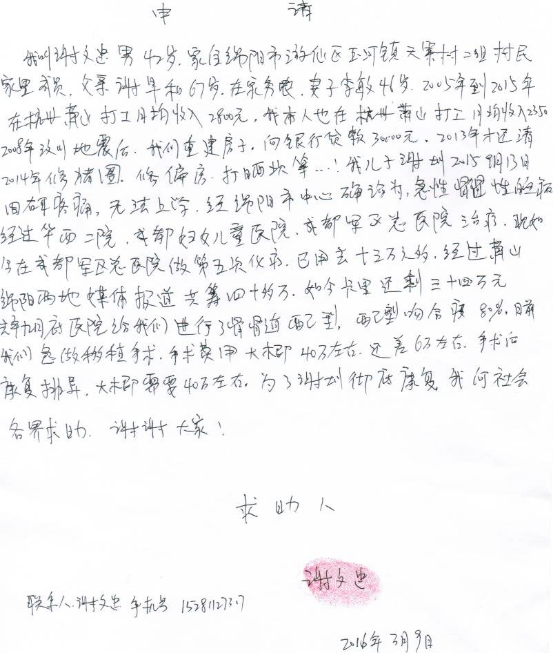 申 请
我叫谢文忠 男 42岁. 家住绵阳市游仙区玉河镇天寨村二组村民
家里成员. 父亲谢早和67岁. 在家务农. 妻子李敏46岁. 2005年到2015年
在杭州萧山打工月均收入2800元. 我本人也在杭州萧山打工月均收入2350
2008年汶川地震后. 我们重建房子. 向银行贷款30000元. 2013年才还清
2014年修猪圈. 修偏房. 打晒坝等…! 我儿子谢 2015 9月13日
因 疼痛, 无法上学. 经绵阳市中心确诊为, 急性 性白血病
经过华西二院. 成都妇女儿童医院. 成都军区总医院治疗. 现如
今在成都军区总医院做第五次化疗. 已用去十三万之多. 经过萧山
绵阳两地媒体报道共筹四十多万. 如今卡里还剩三十四万元
元月底医院给我们进行了骨髓配型, 配型吻合 80%. 目前
我们急做移植手术. 手术费用大木既40万左右. 还差6万左右. 手术后
康复排异. 大木既需要40万左右. 为了谢 彻底康复 我向社会
各界求助. 谢谢大家!
求助人
谢文忠
联系人. 谢文忠 手机号
2016年3月9日